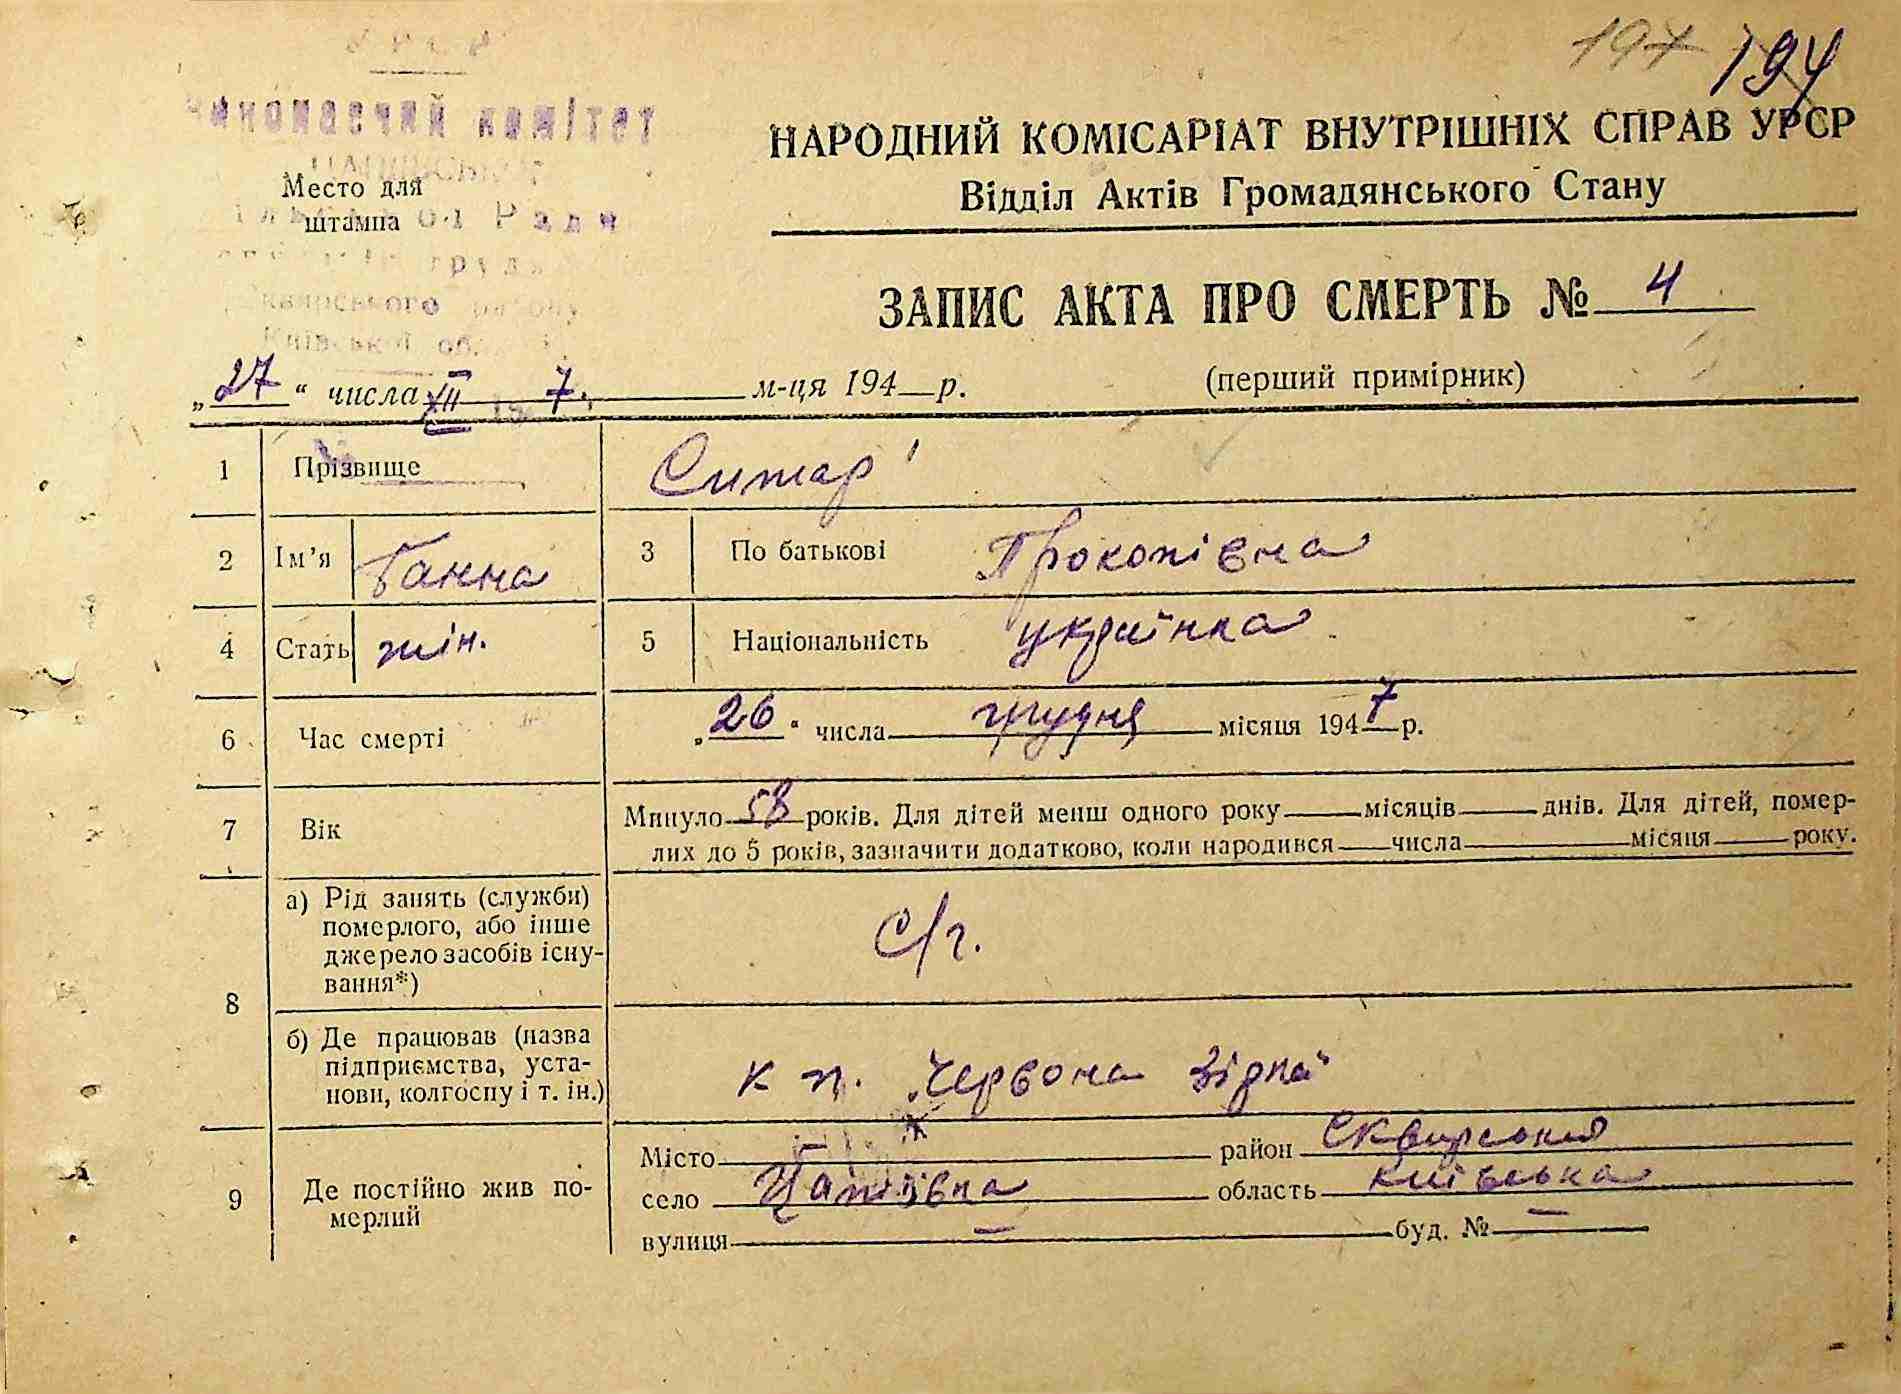 194 194
НАРОДНИЙ КОМІСАРІАТ ВНУТРІШНІХ СПРАВ УРСР
Відділ Актів Громадянського Стану
Место для
штампа
Ради
Сквирського району
Київської обл.
ЗАПИС АКТА ПРО СМЕРТЬ № 4
„27“ числа XII 7. м-ця 194 р.
(перший примірник)
1 Прізвище Ситар
2 Ім’я Ганна 3 По батькові Прокопівна
4 Стать жін. 5 Національність українка
6 Час смерті „26“ числа грудня місяця 1947 р.
7 Вік Минуло 58 років. Для дітей менш одного року місяців днів. Для дітей, помер-
лих до 5 років, зазначити додатково, коли народився числа місяця року.
8 а) Рід занять (служби)
померлого, або інше
джерело засобів існу-
вання*) с/г.
б) Де працював (назва
підприємства, уста-
нови, колгоспу і т. ін.) к п. Червона Зірка
9 Де постійно жив по-
мерлий
Місто район Сквирський
село область Київська
вулиця — буд. № —